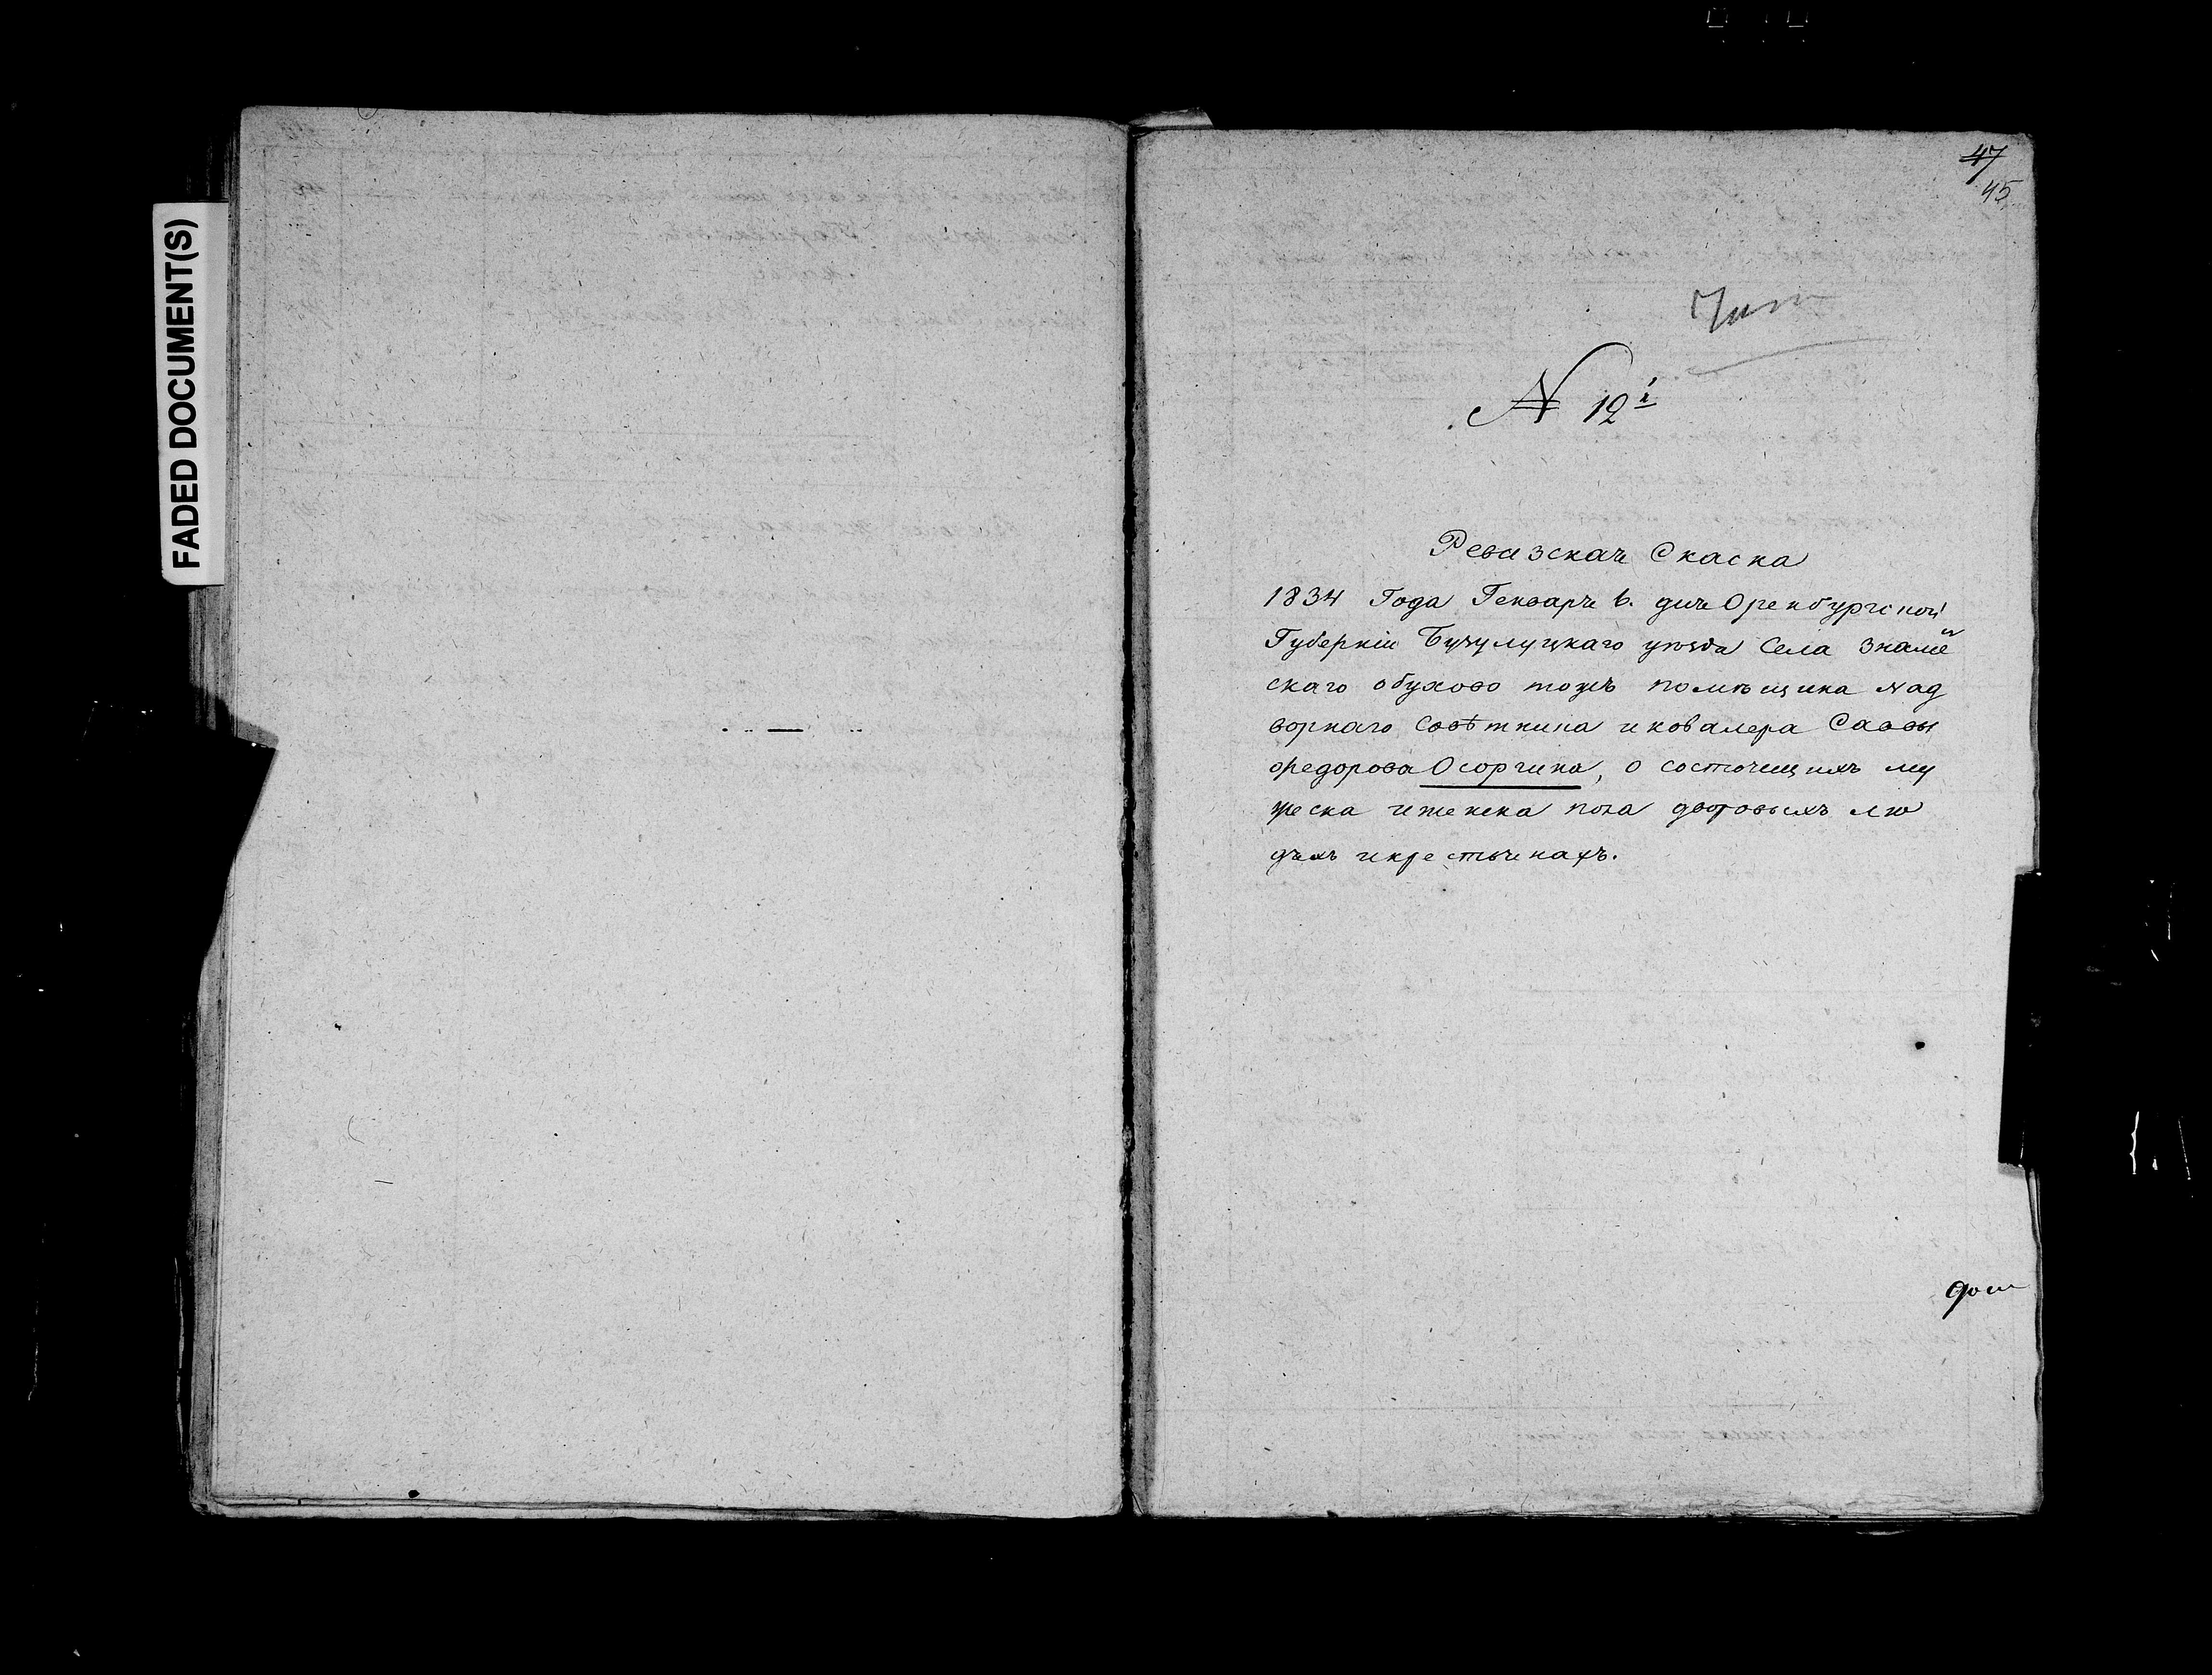 FADED DOCUMENT(S)
47
45
№ 12й
Ревизская Скаска
1834 Года Генваря 6. дня Оренбургской
Губерніи Бузулуцкаго уѣзда Села Знамен
скаго обухово тожъ помѣщика над
ворнаго Совѣтника и ковалера Саввы
федорова Осоргина, о состоящихъ му
жеска и женска пола дворовыхъ лю
дѣхъ и крестьянахъ.